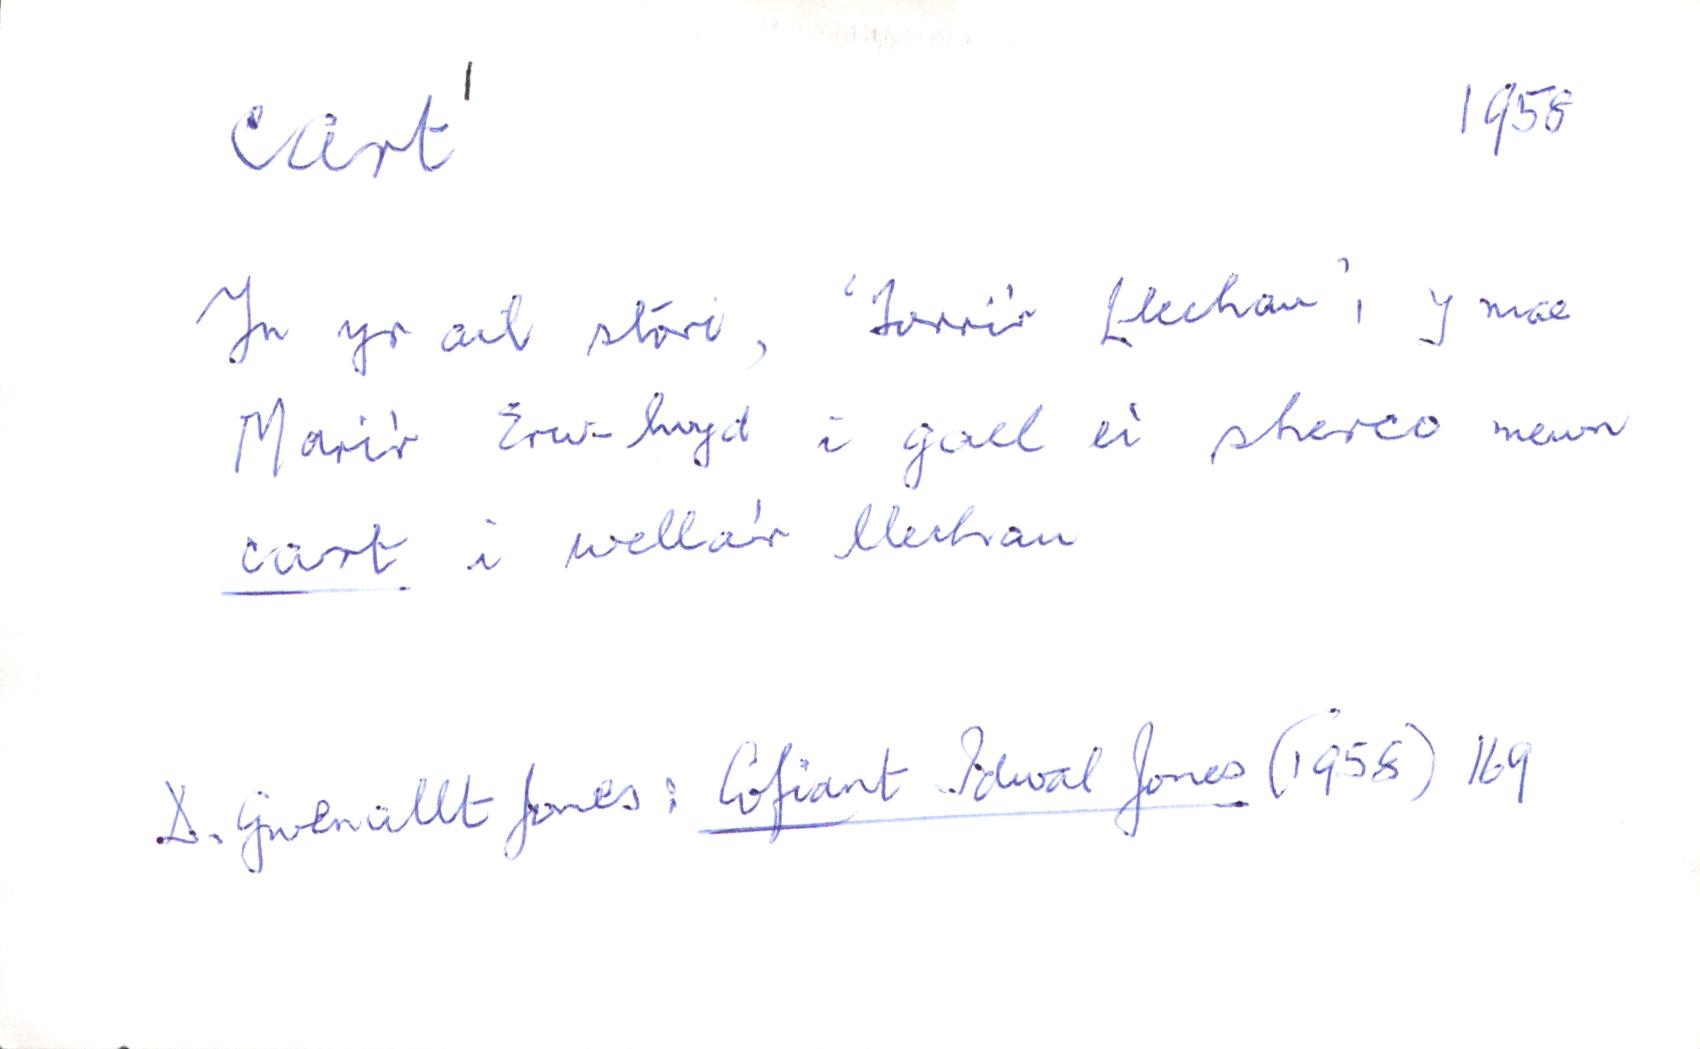 cart¹ 1958
Yn yr ail stori, 'Torri'r Llechau', y mae
Mari'r Erw-lwyd i gael ei sherco mewn
cart i wella'r llechau
D. Gwenallt Jones: Cofiant Idwal Jones (1958) 169